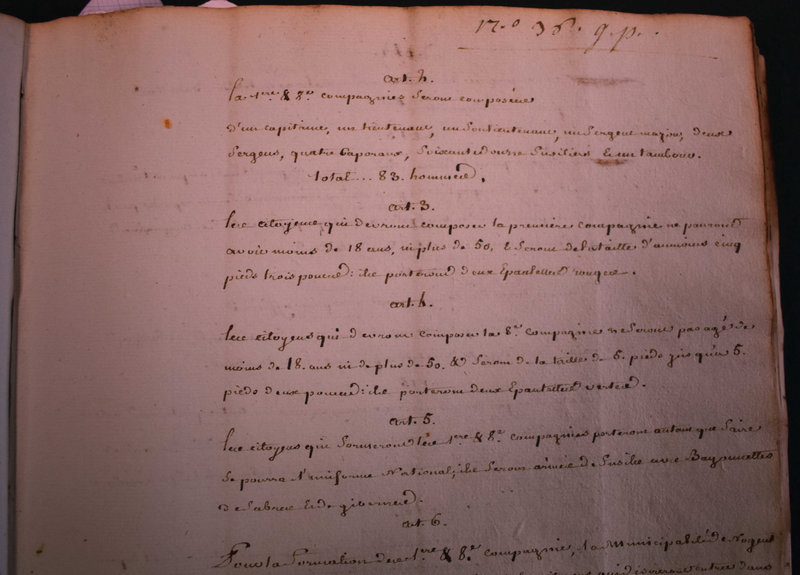 art. 2.
la 1ere & 8e compagnies seront composées
d'un capitaine, un lieutenant, un souslieutenant, un sergent major, deux
sergens, quatre caporaux, soixante douze fusiliers & un tambour.
total... 83. hommes.
art. 3.
les citoyens qui devront composer la première compagnie ne pourront
avoir moins de 18 ans, ni plus de 50, & seront de la taille d'aumoins cinq
pieds trois pouces: ils porteront deux Epaulettes rouges.
art. 4.
les citoyens qui devront composer la 8e compagnie ne seront pas agé de
moins de 18. ans ni de plus de 50. & seront de la taille de 5. pieds jusqu'à 5.
pieds deux pouces: ils porteront deux Epaulettes vertes.
art. 5.
les citoyens qui formeront les 1ere & 8e compagnies porteront autant que faire
se pourra l'uniforme National; ils seront armés de fusils avec Bayonnettes
de sabres & de gibernes.
art. 6.
Pour la formation des 1ere & 8e compagnie, la municipalité de Nogent